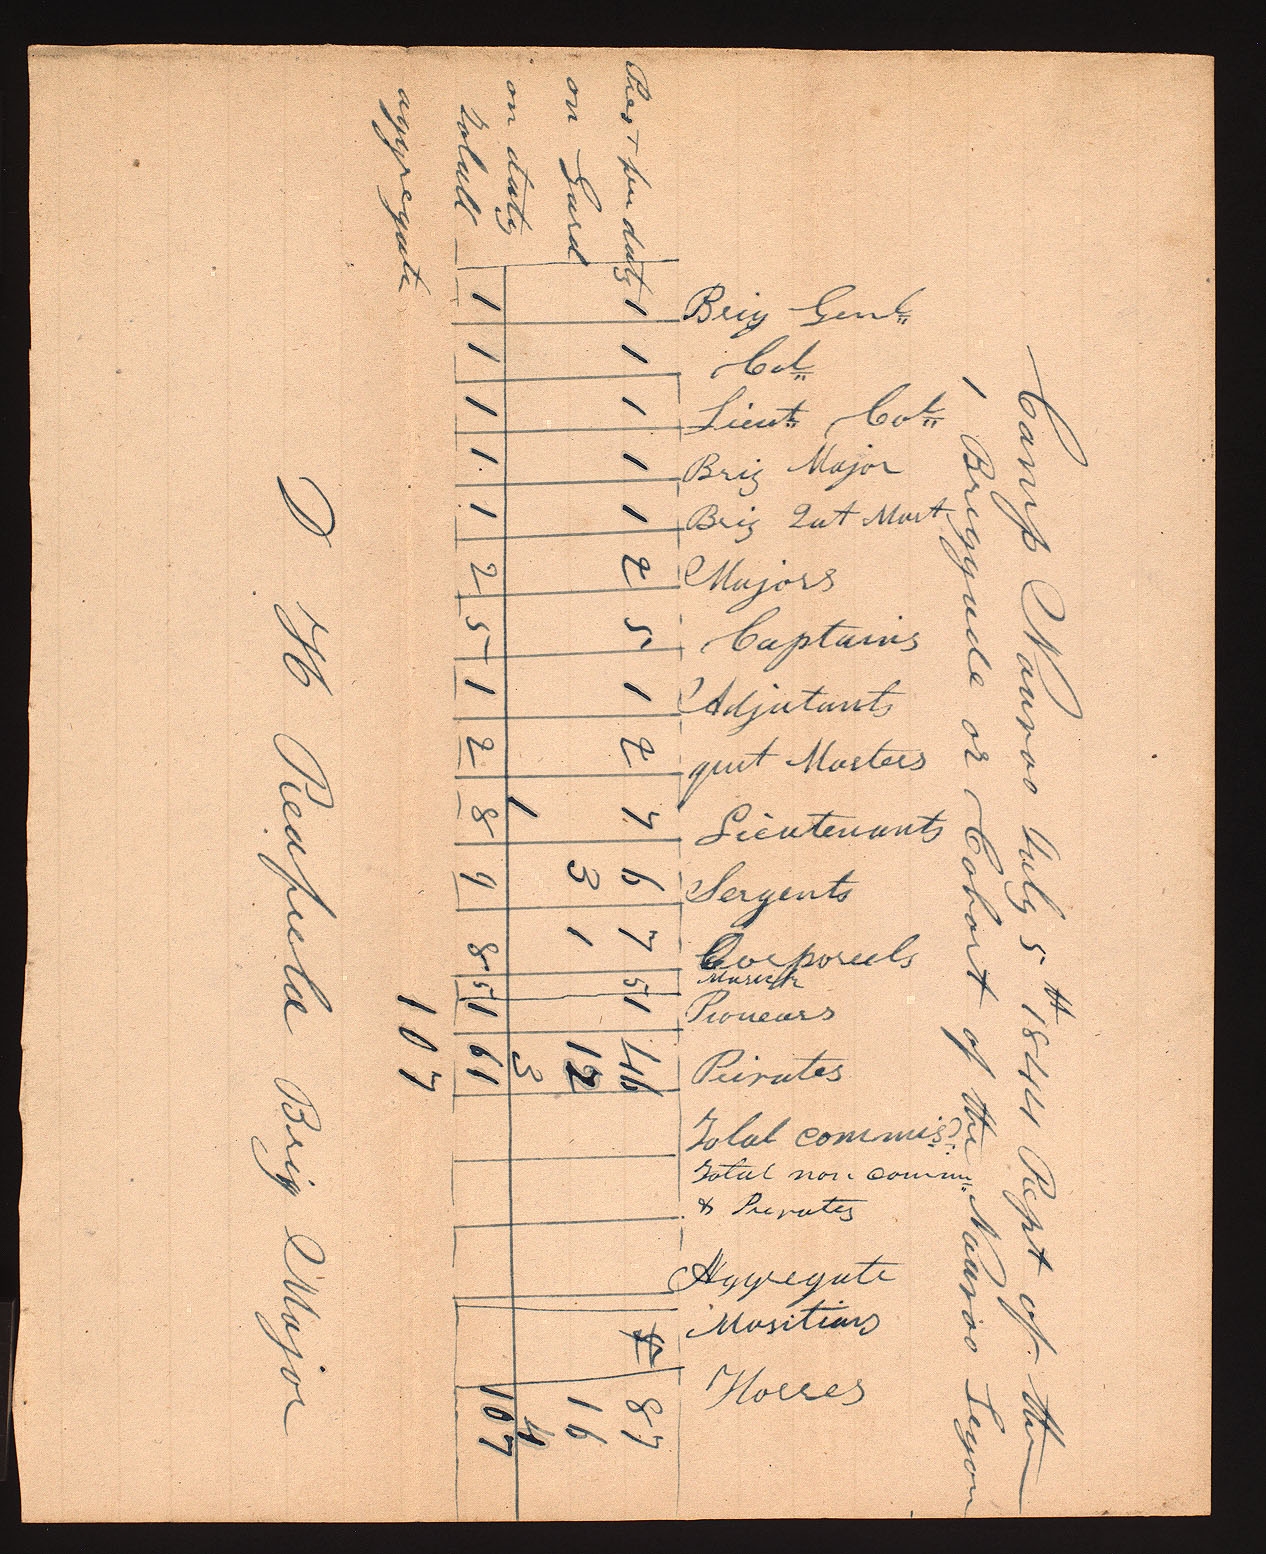 Camp Nauvoo July 5th 1844 Rept of the
1 Briggade or Cohort of the Nauvoo Legon
Brig Genl
Col
Lieut Col
Brig Major
Brig Qut Mast
Majors
Captains
Adjutants
qut Masters
Lieutenants
Sergents
Corporels
Musick
Pioneears
Privates
Total commisd
Total non comm
& Privates
Aggregate
Musitians
Horses
Prest for duty 1 1 1 1 1 2 5 1 2 7 6 7 5 1 46 87
on Gard 3 1 12 16
on duty 1 3 4
Totall 1 1 1 1 1 2 5 1 2 8 9 8 5 1 61 107
aggregate 107
D H Reapield Brig Major